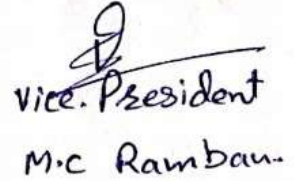 Vice. President
M.C Ramban.